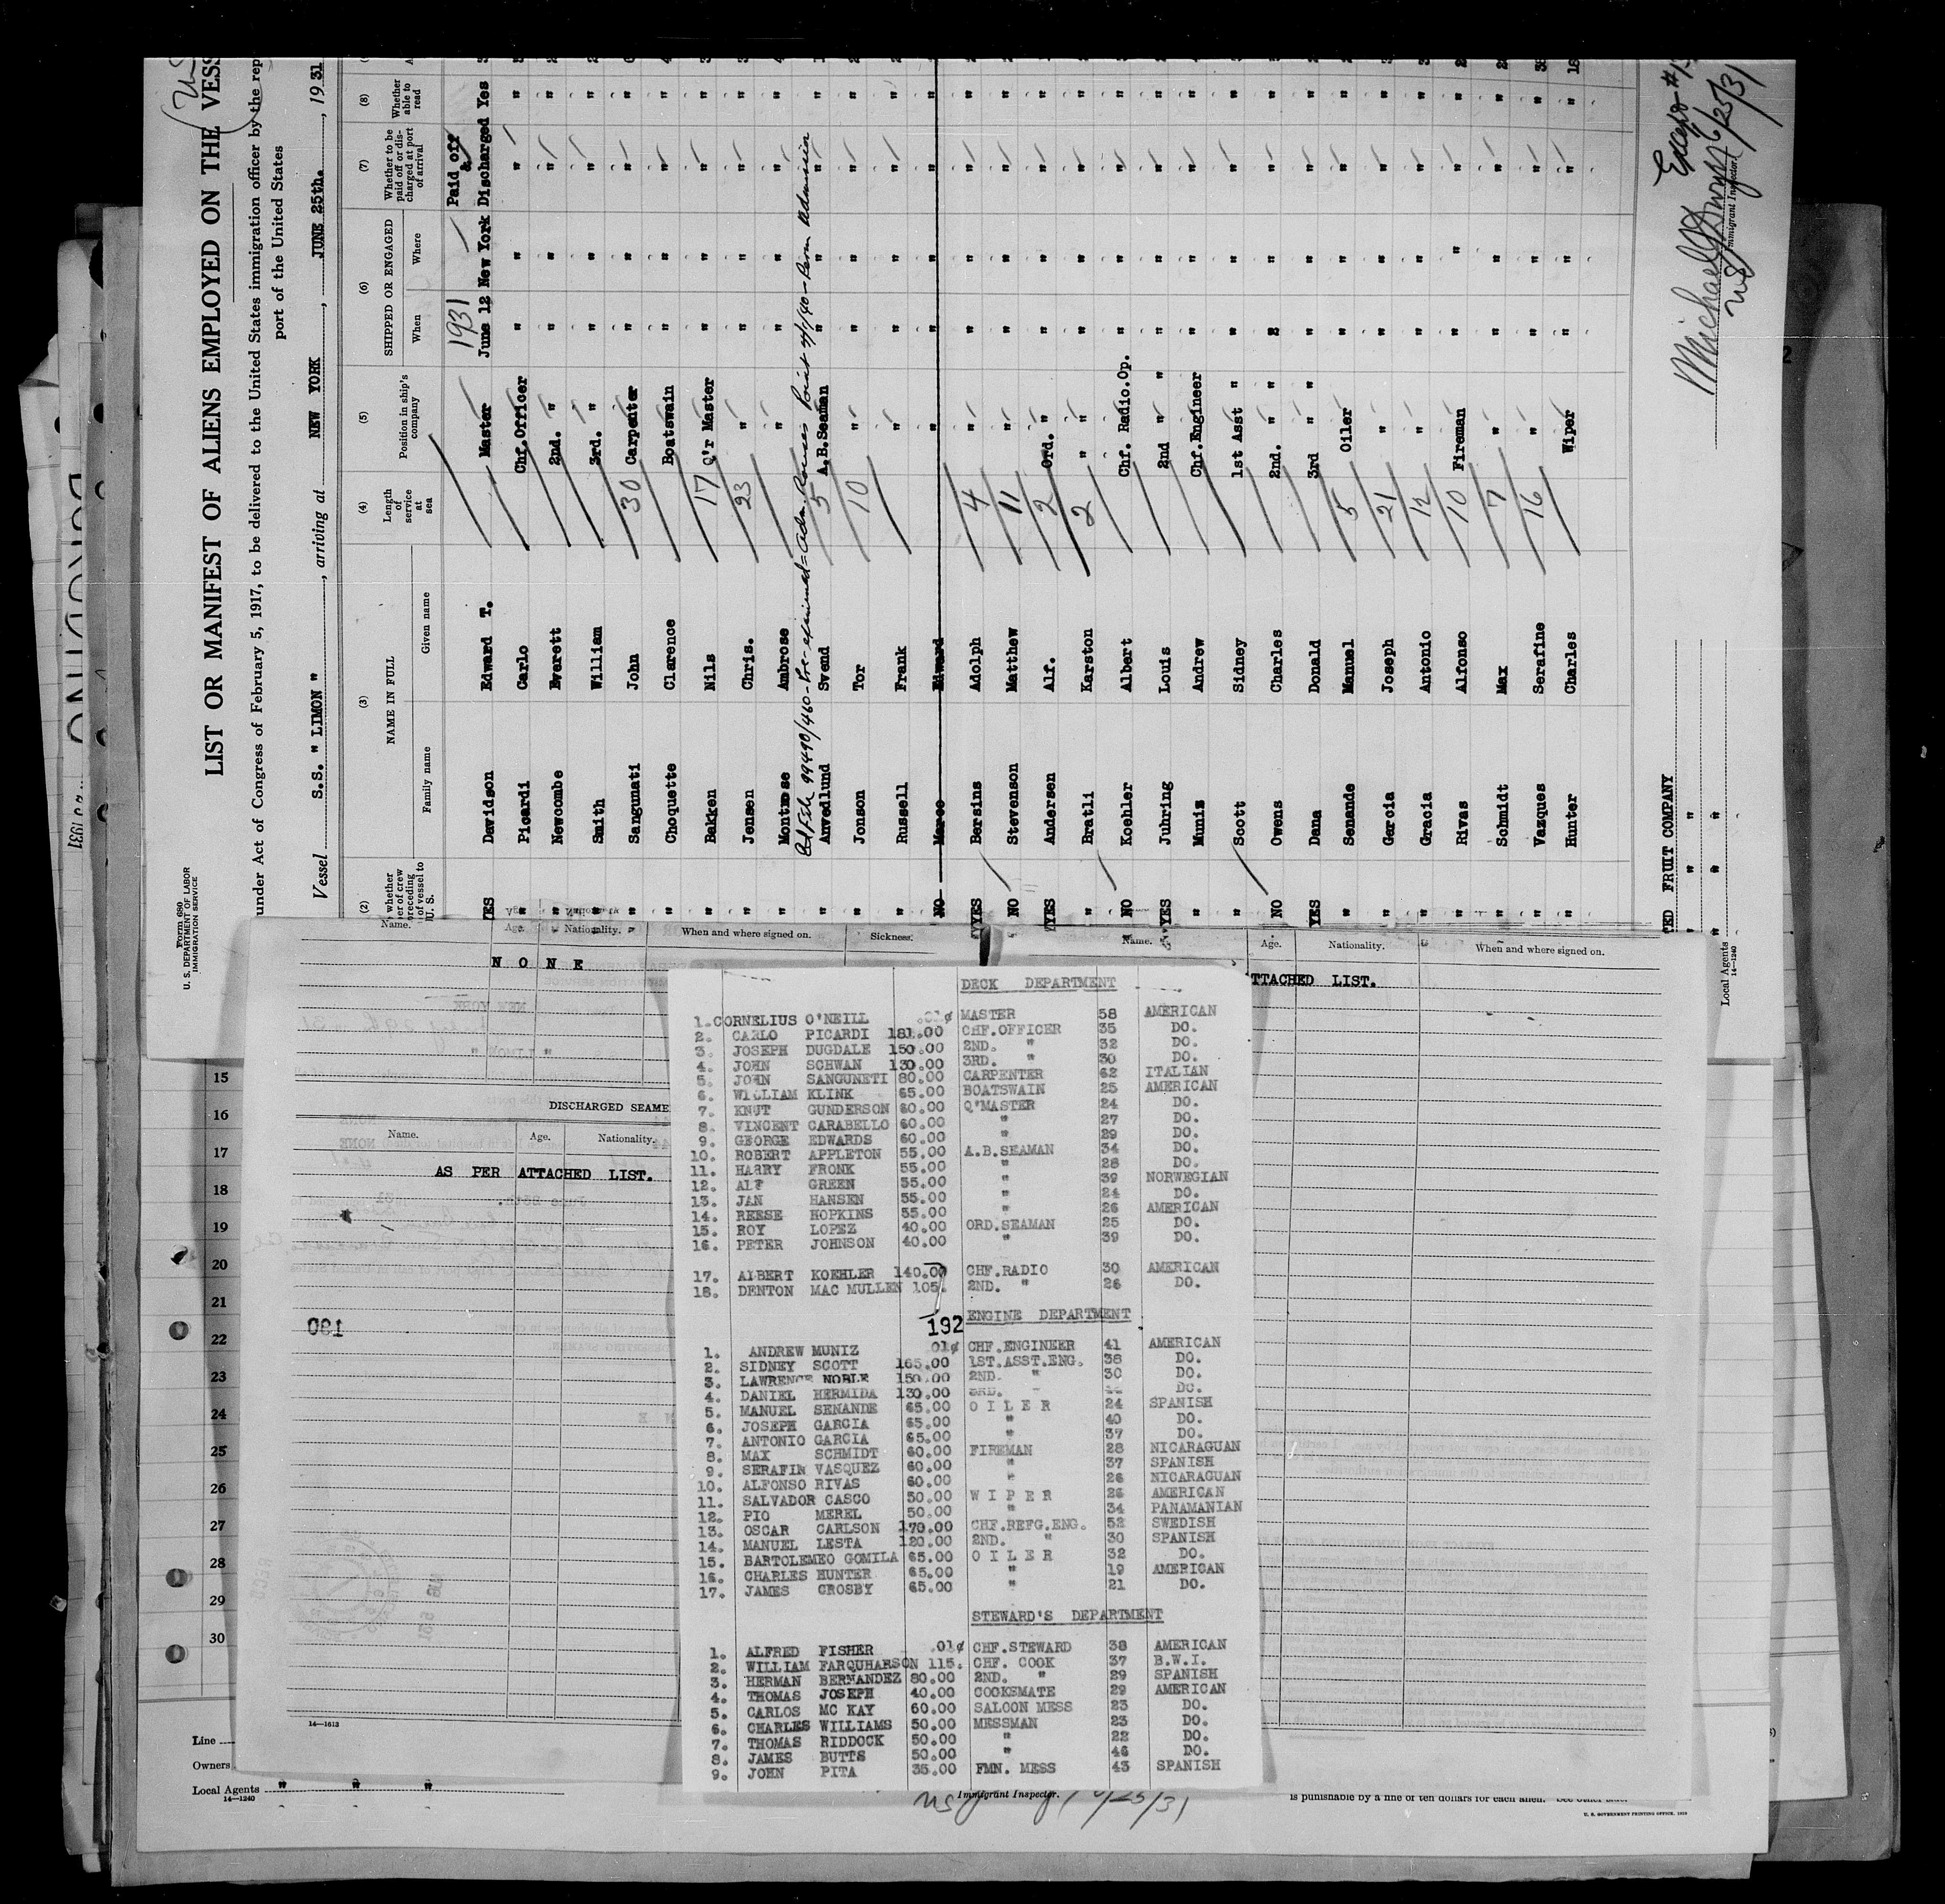 Form 680
U. S. DEPARTMENT OF LABOR
IMMIGRATION SERVICE
LIST OR MANIFEST OF ALIENS EMPLOYED ON THE VESS
under Act of Congress of February 5, 1917, to be delivered to the United States immigration officer by the rep
port of the United States
Vessel S.S. " LIMON ", arriving at NEW YORK, JUNE 25th., 1931
(2) (3) (4) (5) (6) (7) (8)
NAME IN FULL
Family name Given name
Length of service at sea
Position in ship's company
SHIPPED OR ENGAGED
When Where
Whether to be paid off or discharged at port of arrival
Whether able to read
1931 Paid off &
YES Davidson Edward T. Master June 12 New York Discharged Yes
" Picardi Carlo Chf.Officer " " " "
" Newcombe Everett 2nd. " " " " "
" Smith William 3rd. " " " " "
" Sangunati John 30 Carpenter " " " "
" Choquette Clarence Boatswain " " " "
" Bakken Nils 17 Q'r Master " " " "
" Jensen Chris. 23 " " " " "
" Montrose Ambrose " " " " "
" Anvedlund Svend 5 A.B.Seaman " " " "
" Jonson Tor 10 " " " " "
" Russell Frank " " " " "
NO Marco Edward " " " " "
YES Bersins Adolph 4 " " " " "
NO Stevenson Matthew 11 " " " " "
YES Andersen Alf. 2 Ord. " " " " "
" Bratli Karston 2 " " " " " "
NO Koehler Albert Chf. Radio.Op. " " " "
YES Juhring Louis 2nd " " " " " "
" Muniz Andrew Chf.Engineer " " " "
" Scott Sidney 1st Asst " " " " "
NO Owens Charles 2nd. " " " " " "
YES Dana Donald 3rd " " " " " "
" Senande Manuel 5 Oiler " " " "
" Garcia Joseph 21 " " " " "
" Gracia Antonio 12 " " " " "
" Rivas Alfonso 10 Fireman " " " "
" Schmidt Max 7 " " " " "
" Vazques Serafine 16 " " " " "
" Hunter Charles Wiper " " " "
TED FRUIT COMPANY
Local Agents " "
14—1240
Except #13
6/25/31
Immigrant Inspector.
Name. Age. Nationality. When and where signed on. Sickness.
NONE
Name. Age. Nationality. When and where signed on.
TTACHED LIST.
DISCHARGED SEAME
Name. Age. Nationality.
AS PER ATTACHED LIST.
14—1613
DECK DEPARTMENT
1. CORNELIUS O'NEILL .01¢ MASTER 58 AMERICAN
2. CARLO PICARDI 181.00 CHF.OFFICER 35 DO.
3. JOSEPH DUGDALE 150.00 2ND. " 32 DO.
4. JOHN SCHWAN 130.00 3RD. " 30 DO.
5. JOHN SANGUNETI 80.00 CARPENTER 62 ITALIAN
6. WILLIAM KLINK 65.00 BOATSWAIN 25 AMERICAN
7. KNUT GUNDERSON 60.00 Q'MASTER 24 DO.
8. VINCENT CARABELLO 60.00 " 27 DO.
9. GEORGE EDWARDS 60.00 " 29 DO.
10. ROBERT APPLETON 55.00 A.B.SEAMAN 34 DO.
11. HARRY FRONK 55.00 " 28 DO.
12. ALF GREEN 55.00 " 39 NORWEGIAN
13. JAN HANSEN 55.00 " 24 DO.
14. REESE HOPKINS 55.00 " 26 AMERICAN
15. ROY LOPEZ 40.00 ORD.SEAMAN 25 DO.
16. PETER JOHNSON 40.00 " 39 DO.
17. ALBERT KOEHLER 140.00 CHF.RADIO 30 AMERICAN
18. DENTON MAC MULLEN 105. 2ND. " 26 DO.
192
ENGINE DEPARTMENT
1. ANDREW MUNIZ .01¢ CHF.ENGINEER 41 AMERICAN
2. SIDNEY SCOTT 165.00 1ST.ASST.ENG. 38 DO.
3. LAWRENCE NOBLE 150.00 2ND. " 30 DO.
4. DANIEL HERMIDA 130.00 3RD. DO.
5. MANUEL SENANDE 65.00 OILER 24 SPANISH
6. JOSEPH GARCIA 65.00 " 40 DO.
7. ANTONIO GARCIA 65.00 " 37 DO.
8. MAX SCHMIDT 60.00 FIREMAN 28 NICARAGUAN
9. SERAFIN VASQUEZ 60.00 " 37 SPANISH
10. ALFONSO RIVAS 60.00 " 26 NICARAGUAN
11. SALVADOR CASCO 50.00 WIPER 26 AMERICAN
12. PIO MEREL 50.00 " 34 PANAMANIAN
13. OSCAR CARLSON 170.00 CHF.REFG.ENG. 52 SWEDISH
14. MANUEL LESTA 120.00 2ND. " 30 SPANISH
15. BARTOLEMEO GOMILA 65.00 OILER 32 DO.
16. CHARLES HUNTER 65.00 " 19 AMERICAN
17. JAMES CROSBY 65.00 " 21 DO.
STEWARD'S DEPARTMENT
1. ALFRED FISHER .01¢ CHF.STEWARD 38 AMERICAN
2. WILLIAM FARQUHARSON 115. CHF. COOK 37 B.W.I.
3. HERMAN BERNANDEZ 80.00 2ND. " 29 SPANISH
4. THOMAS JOSEPH 40.00 COOKSMATE 29 AMERICAN
5. CARLOS MC KAY 60.00 SALOON MESS 23 DO.
6. CHARLES WILLIAMS 50.00 MESSMAN 23 DO.
7. THOMAS RIDDOCK 50.00 " 22 DO.
8. JAMES BUTTS 50.00 " 46 DO.
9. JOHN PITA 35.00 FMN. MESS 43 SPANISH
15
16
17
18
19
20
21
22
23
24
25
26
27
28
29
30
Line
Owners
Local Agents " " "
14—1240
Immigrant Inspector.
is punishable by a fine of ten dollars for each alien.